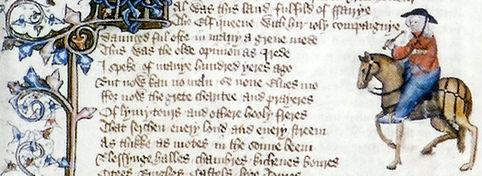 Al was this land fulfild of ffairye
The Elf queene with hir ioly compaignye
Daunced ful ofte in many a grene mede
This was the olde opinion as I rede
I speke of manye hundred yeres ago
But now kan no man se none Elues mo
ffor now the grete charitee and prayeres
Of lymytours and othere hooly freres
That serchen euery lond and euery streem
As thikke as motes in the sonne beem
Blessynge halles chambres kichenes boures
Citees Burghes Castels hye Toures